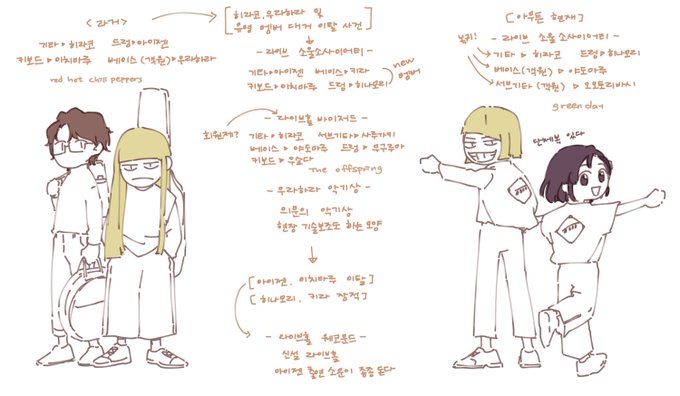 <과거>
기타▸히라코 드럼▸아이젠
키보드▸이치마루 베이스(객원)▸우라하라
red hot chili peppers
[히라코, 우라하라 및
유명 멤버 대거 이탈 사건]
- 라이브 소울소사이어티 -
기타▸아이젠 베이스▸키라
키보드▸이치마루 드럼▸히나모리
new
멤버
- 라이브홀 바이저드 -
회원제?
기타▸히라코 서브기타▸사루가키
베이스▸야도마루 드럼▸무구루마
키보드▸우쇼다
the offspring
- 우라하라 악기상 -
의문의 악기상
현장 기술보조도 하는 모양
[아이젠, 이치마루 이탈]
[히나모리, 키라 잠적]
- 라이브홀 웨코문드 -
신설 라이브홀
아이젠 출연 소문이 종종 돈다
[아무튼 현재]
- 라이브 소울소사이어티 -
복귀!
기타▸히라코 드럼▸히나모리
베이스(객원)▸야도마루
서브기타(객원)▸오오토리바시
green day
단체복 있다